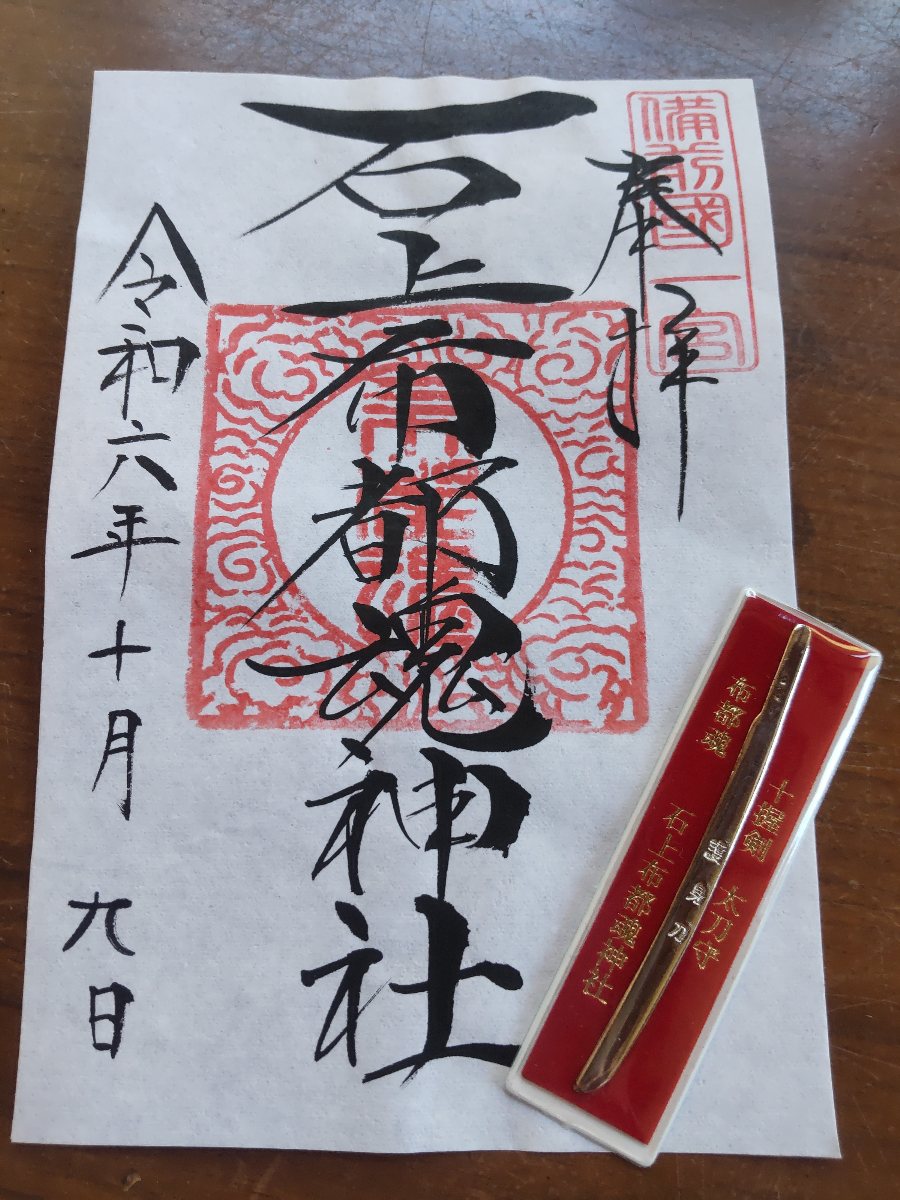 備前國一宮
奉拝
石上布都魂神社
令和六年十月九日
十握剣 太刀守
布都魂
石上布都魂神社